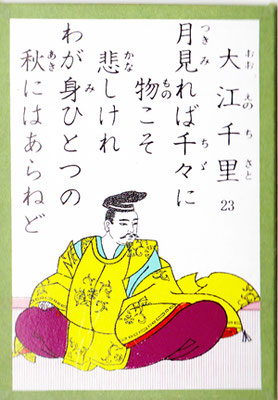 大江千里
おおえのちさと
23
月見れば千々に
つきみちゞ
物こそ
もの
悲しけれ
かな
わが身ひとつの
み
秋にはあらねど
あき